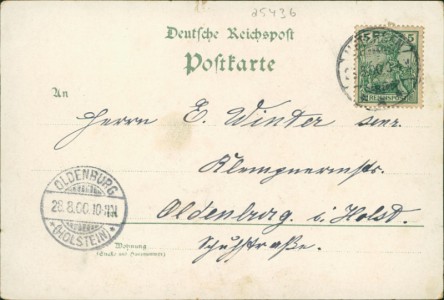 25436
Deutsche Reichspost
Postkarte
5
REICHSPOST
An
Herrn E. Winter senr.
Klempnermstr.
Oldenburg i. Holst.
Schuhstraße.
OLDENBURG
28.8.00.10-11N
*(HOLSTEIN)*
Wohnung
(Straße und Hausnummer)